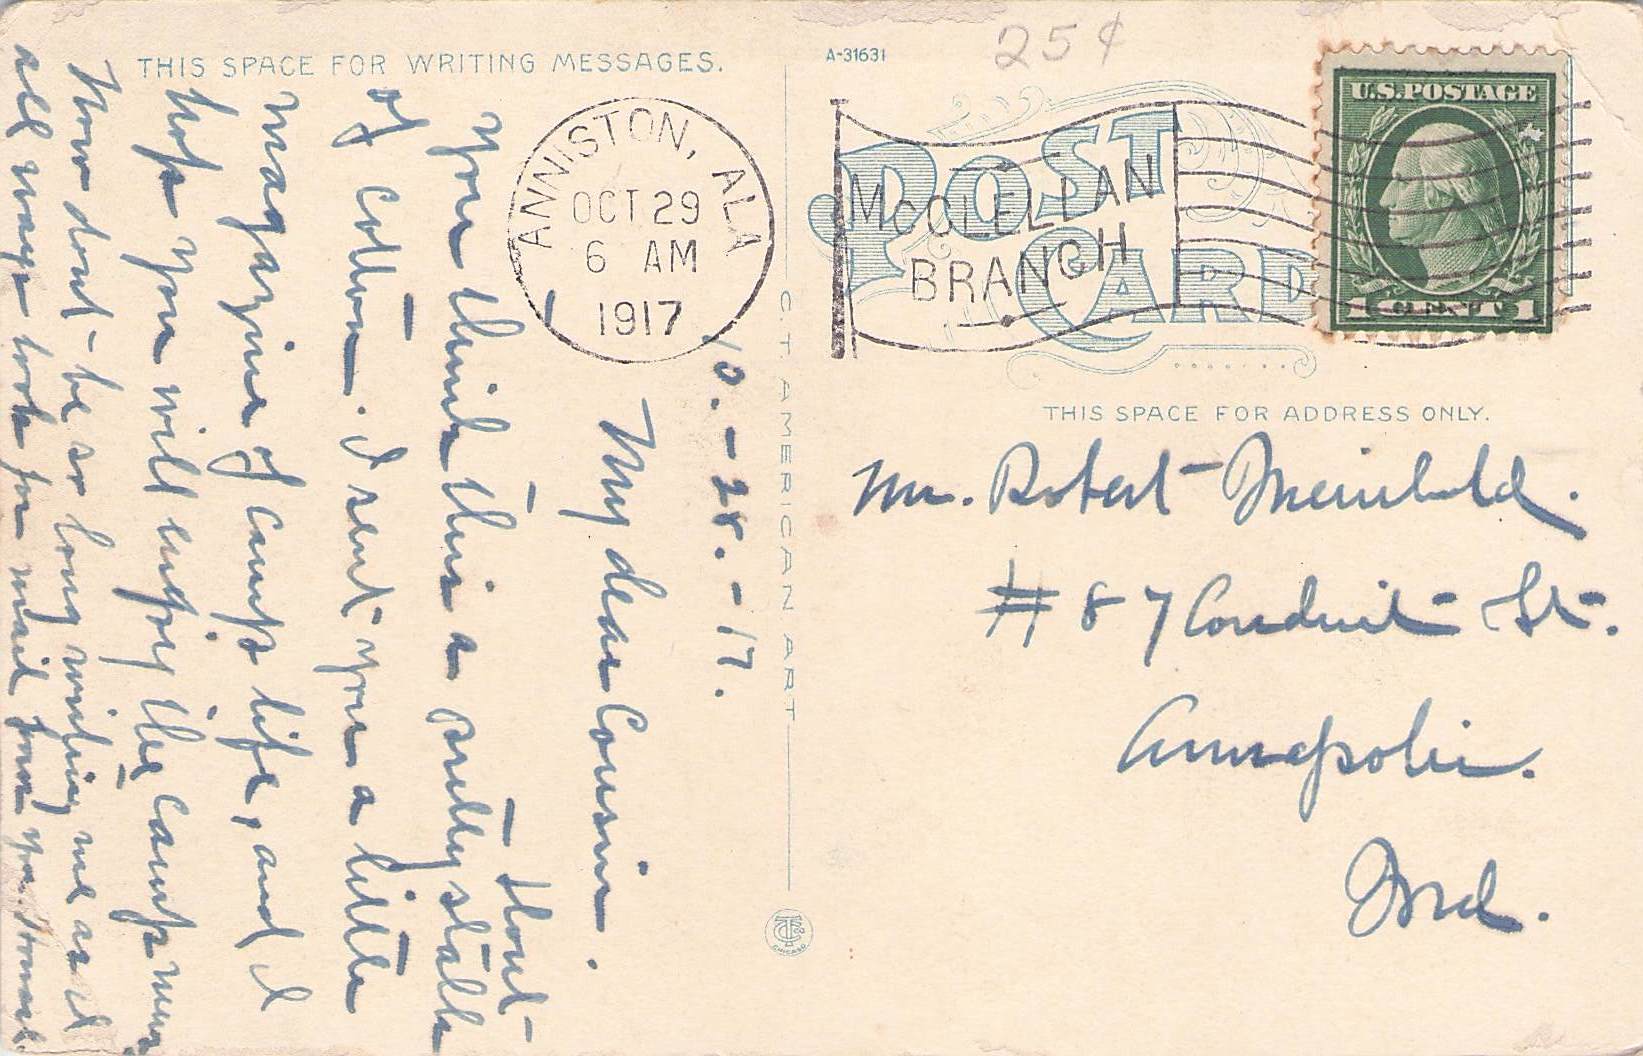 THIS SPACE FOR WRITING MESSAGES.
10.-28.-17.
My dear Cousin.
Dont
you think this a pretty stalk
of Cotton. I sent you a little
magazine of camp life, and I
hope you will enjoy the camp news
Now dont be so long writing me as I
all ways look for mail from you.
ANNISTON, ALA
OCT 29
6 AM
1917
C.T. AMERICAN ART
CHICAGO
A-31631
25¢
POST CARD
McCLELLAN
BRANCH
U.S. POSTAGE
1 CENT 1
THIS SPACE FOR ADDRESS ONLY.
Mr. Robert Meinhold.
# 87 Conduit St.
Annapolis.
Md.